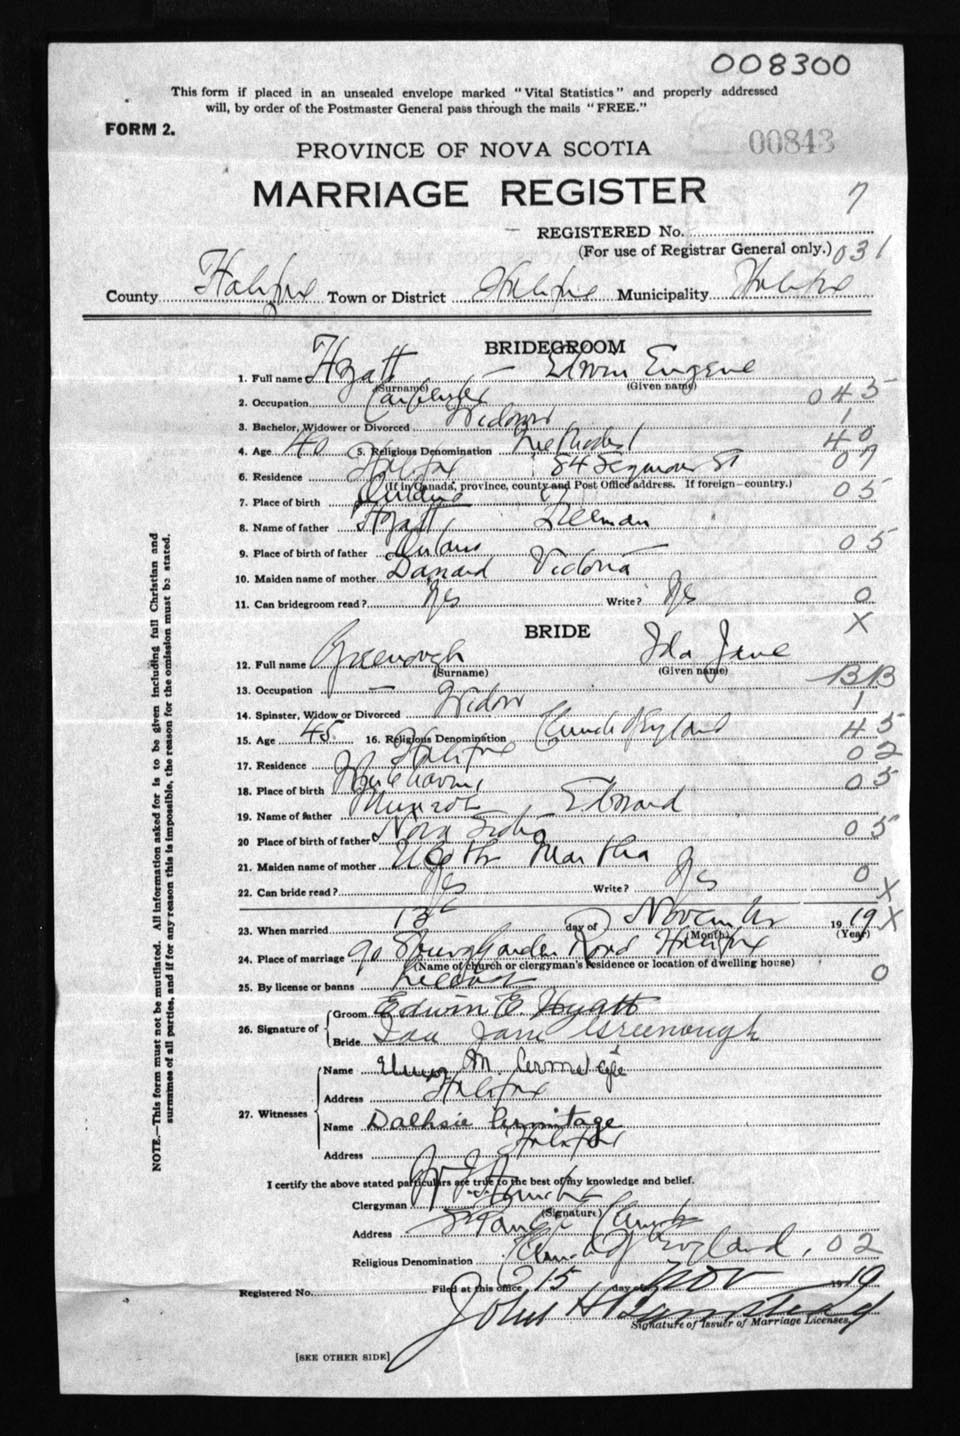 008300
This form if placed in an unsealed envelope marked "Vital Statistics" and properly addressed
will, by order of the Postmaster General pass through the mails "FREE."
FORM 2.
00843
PROVINCE OF NOVA SCOTIA
MARRIAGE REGISTER
7
REGISTERED No.
(For use of Registrar General only.) 031
County Halifax Town or District Halifax Municipality Halifax
BRIDEGROOM
1. Full name Hyatt — Edwin Eugene
(Surname) (Given name)
2. Occupation Carpenter 045
3. Bachelor, Widower or Divorced Widower 1
4. Age 40 5. Religious Denomination Methodist 40
6. Residence Halifax 54 Seymour St 07
(If in Canada, province, county and Post Office address. If foreign—country.)
7. Place of birth 05
8. Name of father Hyatt
9. Place of birth of father 05
10. Maiden name of mother Victoria
11. Can bridegroom read? Yes Write? Yes 0
X
BRIDE
12. Full name Greenough Ida Jane
(Surname) (Given name)
13. Occupation — BB
14. Spinster, Widow or Divorced Widow 1
15. Age 45 16. Religious Denomination Church of England 45
17. Residence Halifax 02
18. Place of birth 05
19. Name of father Munroe Edward
20 Place of birth of father Nova Scotia 05
21. Maiden name of mother Martha
22. Can bride read? Yes Write? Yes 0
X
23. When married day of November 1919 X
(Month) (Year)
24. Place of marriage 90 Road Halifax
(Name of church or clergyman's residence or location of dwelling house)
25. By license or banns License 0
26. Signature of Groom Edwin E. Hyatt
Bride Ida Jane Greenough
27. Witnesses Name M. Armitage
Address Halifax
Name Dalhsie Armitage
Address Halifax
I certify the above stated particulars are true to the best of my knowledge and belief.
Clergyman
(Signature)
Address
Religious Denomination Church of England, 02
Registered No. Filed at this office 15 day of Nov 1919
John H Barnstead
Signature of Issuer of Marriage Licenses.
[SEE OTHER SIDE]
NOTE.—This form must not be mutilated. All information asked for is to be given including full Christian and
surnames of all parties, and if for any reason this is impossible, the reason for the omission must be stated.